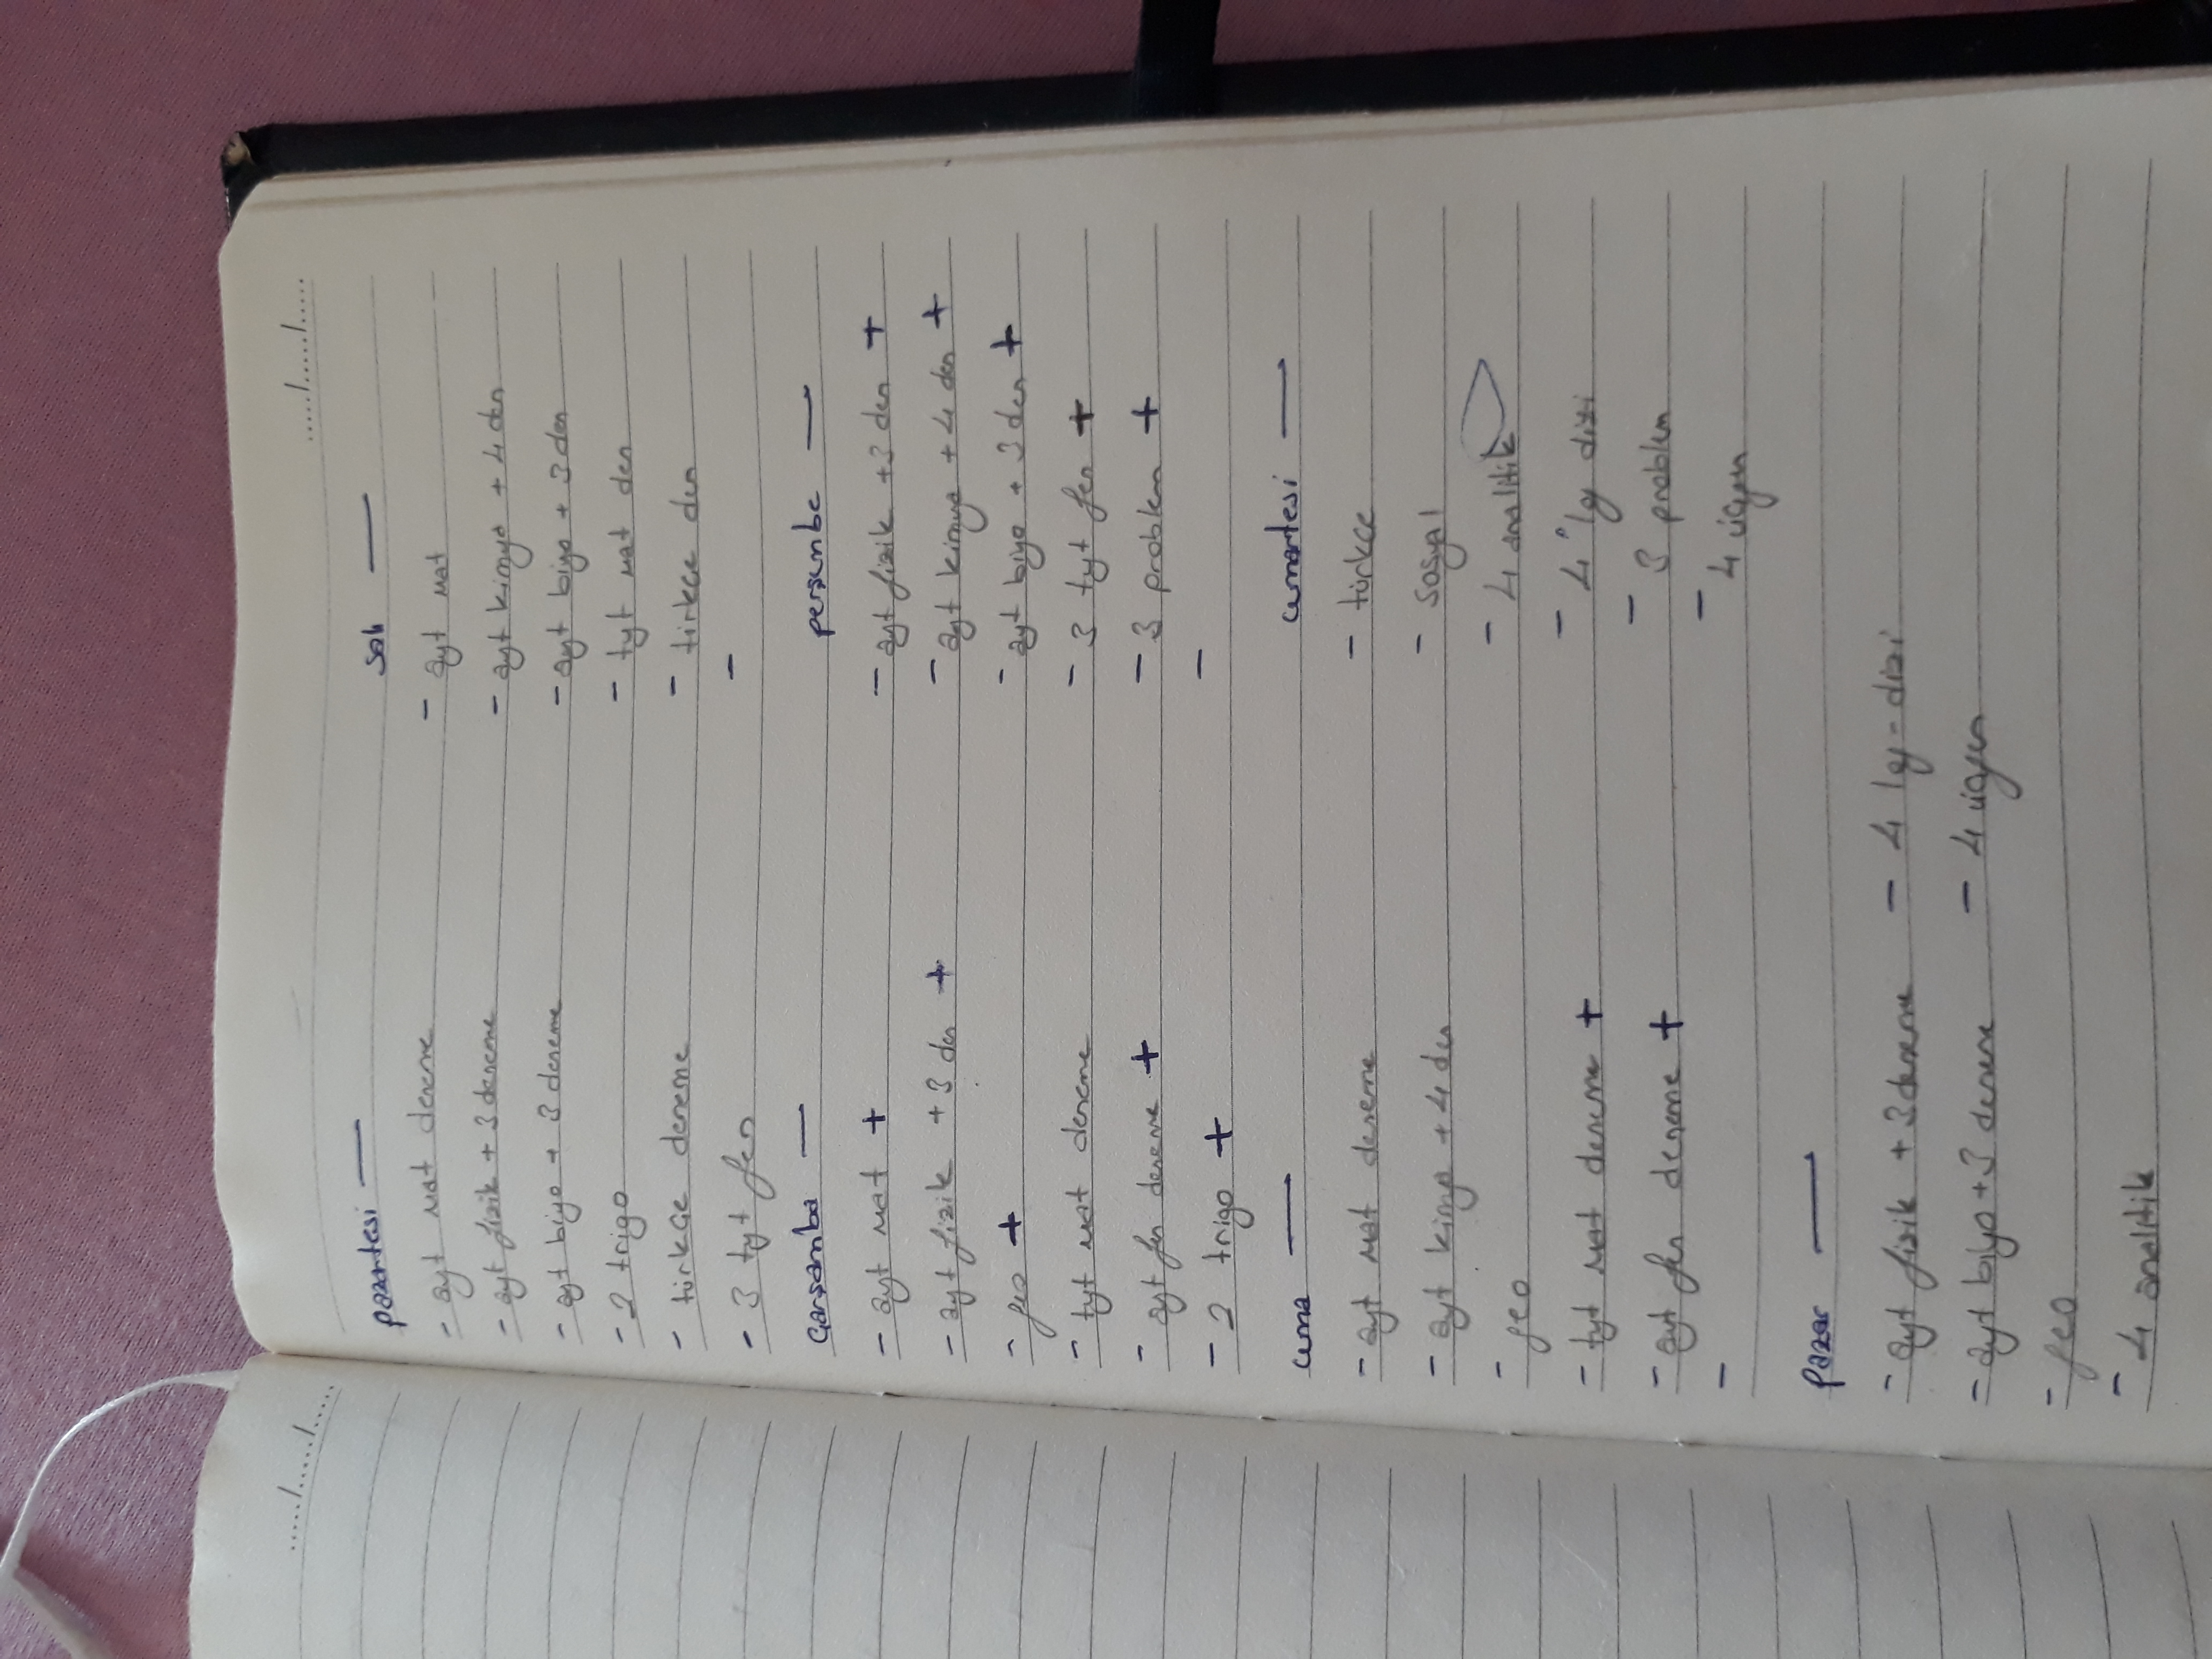 ...../...../.....
pazartesi —
- ayt mat deneme
- ayt fizik + 3 deneme
- ayt biyo + 3 deneme
- 2 trigo
- türkçe deneme
- 3 tyt fen
salı —
- ayt mat
- ayt kimya + 4 den
- ayt biyo + 3 den
- tyt mat den
- türkçe den
-
Çarşamba —
- ayt mat +
- ayt fizik + 3 den +
- geo +
- tyt mat deneme
- ayt fen deneme +
- 2 trigo +
perşembe —
- ayt fizik + 3 den +
- ayt kimya + 4 den +
- ayt biyo + 3 den +
- 3 tyt fen +
- 3 problem +
-
cuma —
- ayt mat deneme
- ayt kimya + 4 den
- geo
- tyt mat deneme +
- ayt fen deneme +
-
cumartesi —
- türkçe
- sosyal
- 4 analitik
- 4 log dizi
- 3 problem
- 4 üçgen
pazar —
- ayt fizik + 3 deneme
- ayt biyo + 3 deneme
- geo
- 4 analitik
- 4 log - dizi
- 4 üçgen
...../...../.....